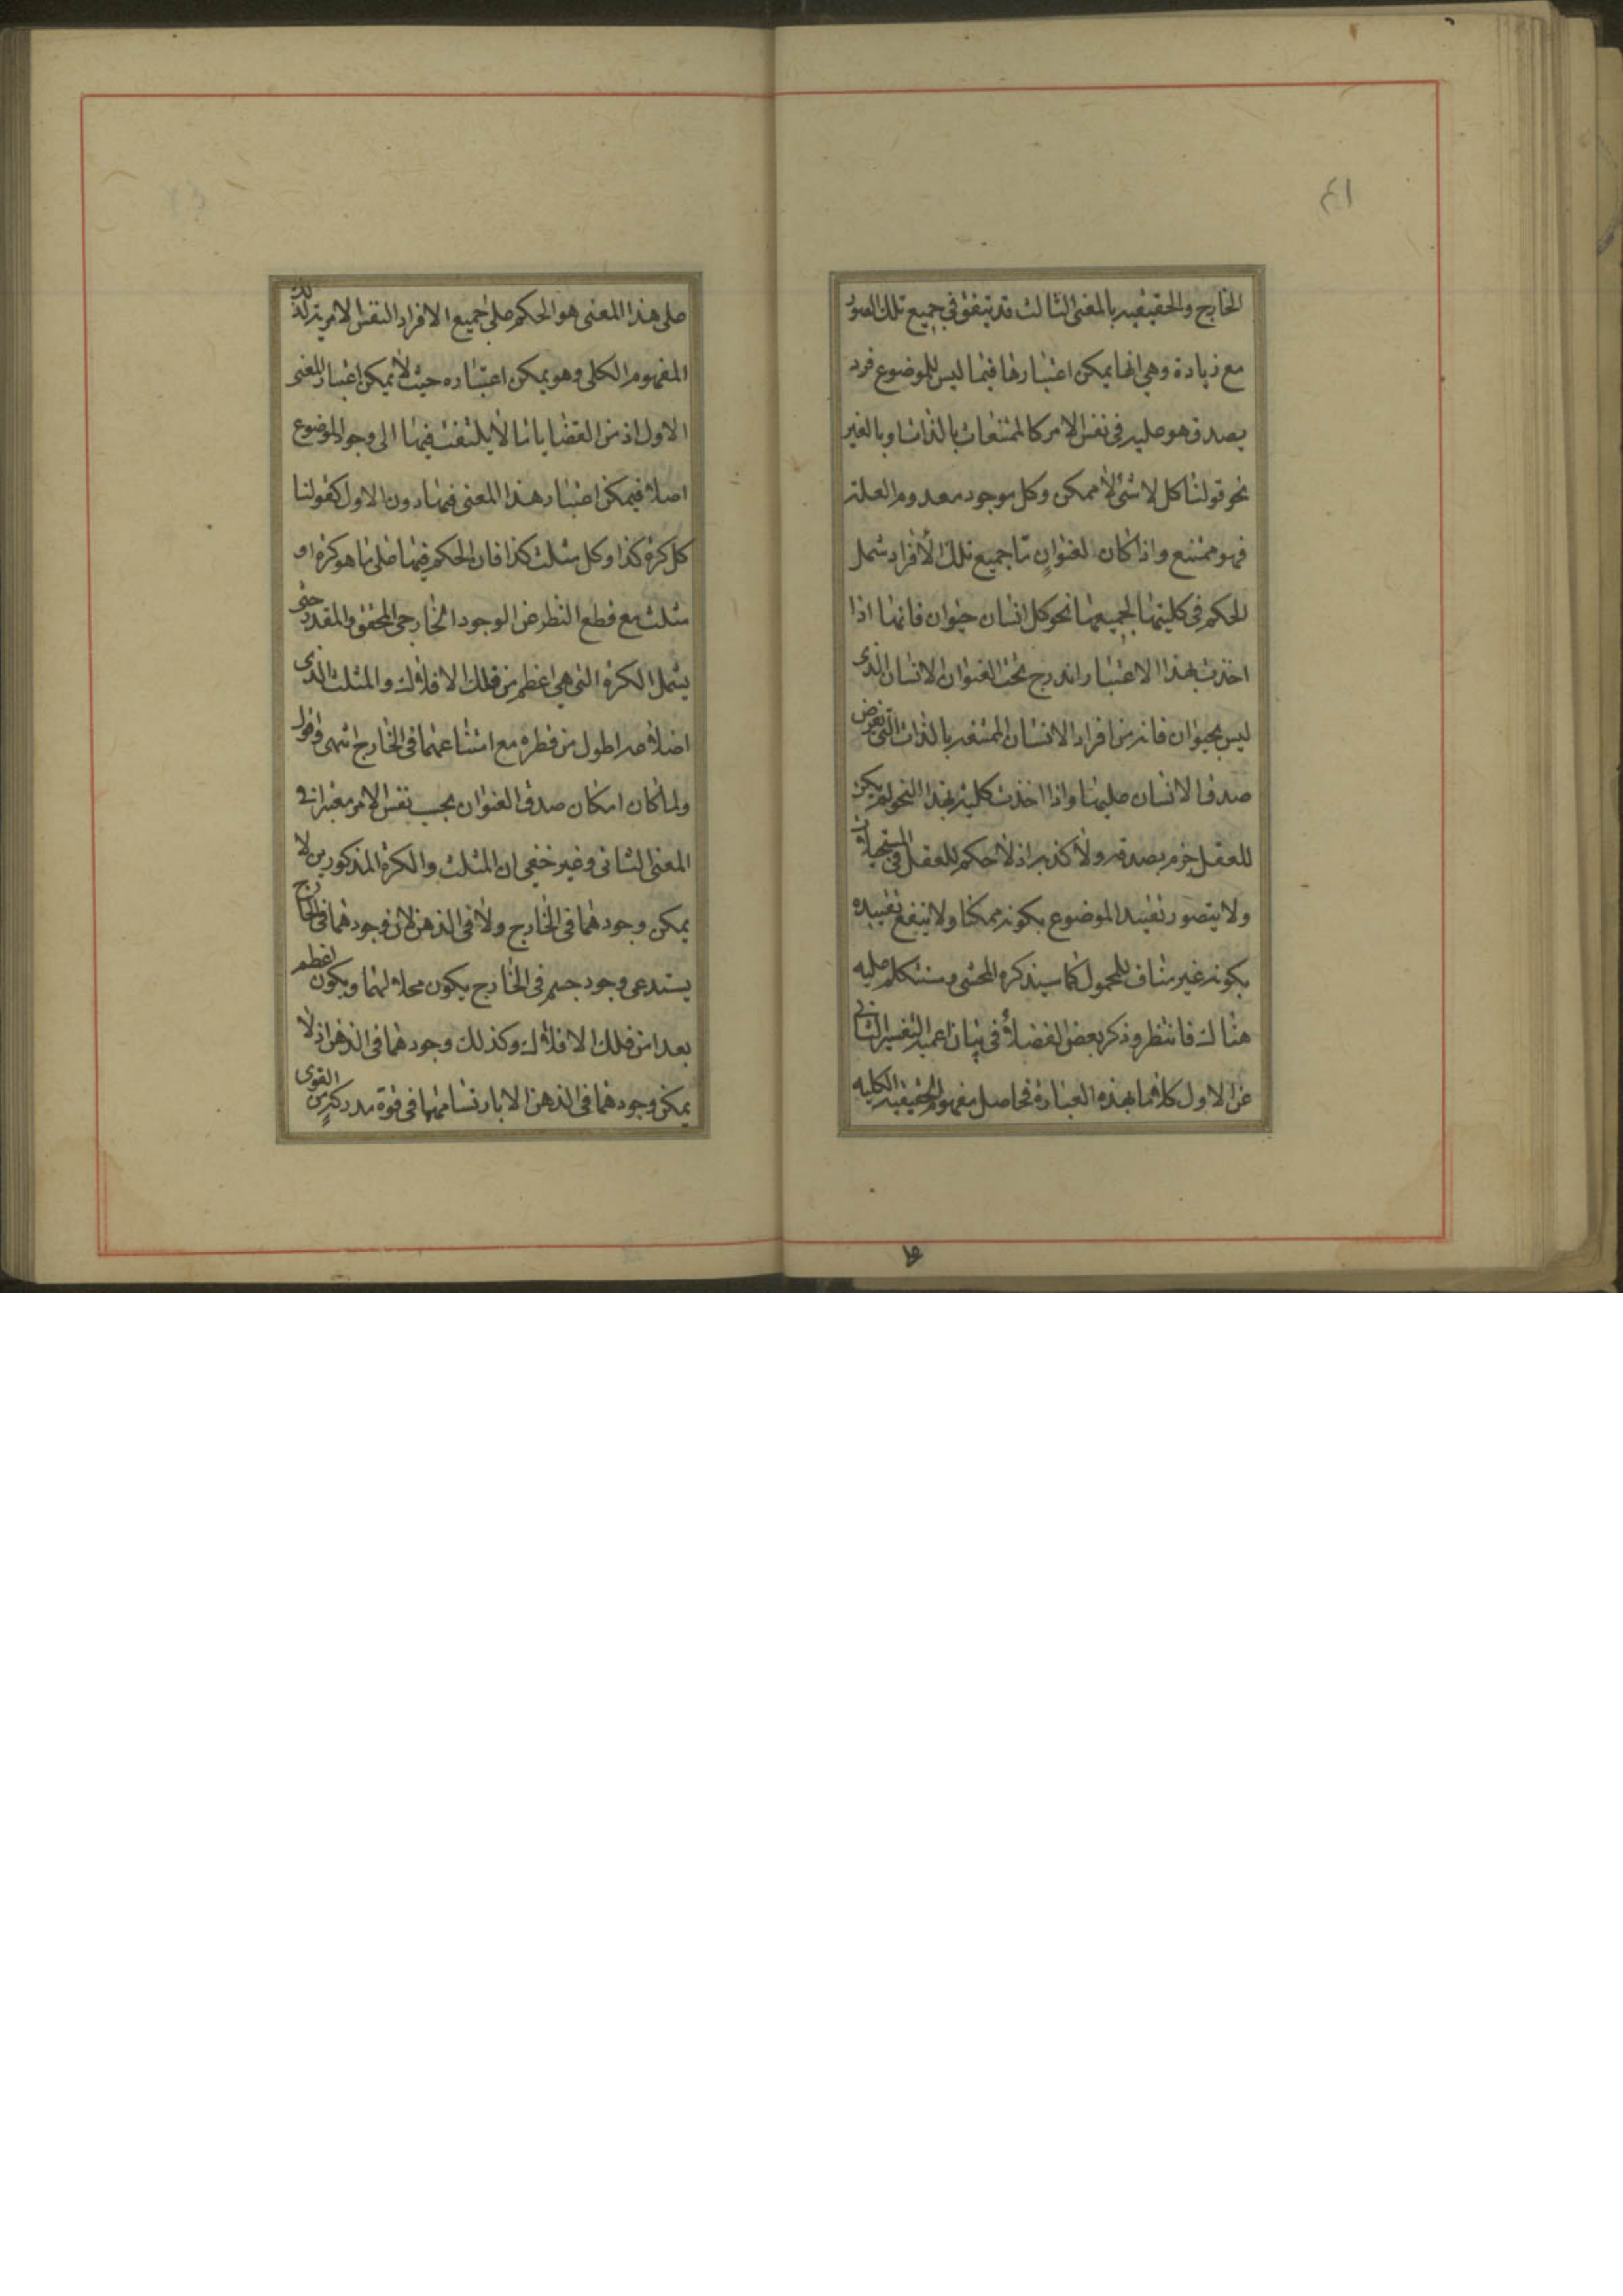 ٤١
الخارج والحقيقيه بالمعنى الثالث قد يتفق في جميع تلك الصور
مع زيادة وهي انها يمكن اعتبارها فيما ليس للموضوع فرد
يصدق هو عليه في نفس الامر كالممتنعات بالذات او بالغير
نحو قولنا كل لا شئ لا ممكن وكل موجود معدوم العلة
فهو ممتنع واذا كان لعنوان ما جميع تلك الافراد شمل
الحكم في كليتها لجميعها نحو كل انسان حيوان فانها اذا
اخذت بهذا الاعتبار اندرج تحت العنوان الانسان الذى
ليس بحيوان فانه من افراد الانسان الممتنعه بالذات التي نفرض
صدق الانسان عليها واذا اخذت كليه بهذا النحو لم يكن
للعقل جزم بصدقه ولا كذبه اذ لا حكم للعقل في المستحيلات
ولا يتصور تقييد الموضوع بكونه ممكنا ولا ينفع تقييده
بكونه غير مناف للمحمول كما سيذكره المحشى وسنتكلم عليه
هناك فانتظر وذكر بعض الفضلاء في بيان اعميه التفسير الثاني
عن الاول كلاما بهذه العبارة فحاصل مفهوم الحقيقيه الكليه
على هذا المعنى هو الحكم على جميع الافراد النفس الامرية لذلك
المفهوم الكلى وهو يمكن اعتباره حيث لا يمكن اعتبار المعنى
الاول اذ من القضايا ما لا يلتفت فيها الى وجود الموضوع
اصلا فيمكن اعتبار هذا المعنى فيها دون الاول كقولنا
كل كرة كذا وكل مثلث كذا فان الحكم فيها على ما هو كرة او
مثلث مع قطع النظر عن الوجود الخارجى المحقق والمقدر حتى
يشمل الكرة التى هى اعظم من فلك الافلاك والمثلث الذى
اضلاعه اطول من قطره مع امتناعهما في الخارج انتهى واقول
ولما كان امكان صدق العنوان بحسب نفس الامر معتبرا في
المعنى الثانى وغير خفى ان المثلث والكرة المذكورين لا
يمكن وجودهما في الخارج ولا في الذهن لان وجودهما في الخارج
يستدعى وجود جسم في الخارج يكون محلا لهما ويكون اعظم
بعدا من فلك الافلاك وكذلك وجودهما في الذهن اذ لا
يمكن وجودهما في الذهن الا بارتسامهما في قوة مدركة من القوى